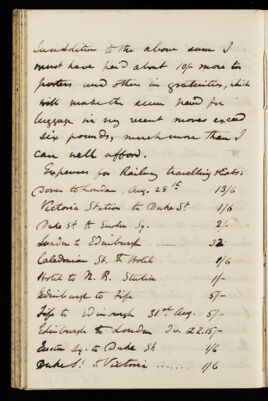 In addition to the above sum I
must have paid about 10/- more to
porters and others in gratuities, which
will make the sum paid for
luggage in my recent moves exceed
six pounds, much more than I
can well afford.
Expenses for Railway travelling &c:
Dover to London, Aug. 28th 13/6
Victoria Station to Duke St. 1/6
Duke St. to Euston Sq. 2/-
London to Edinburgh
Caledonian St. to Hotel 1/6
Hotel to N. B. Station 1/-
Edinburgh to Fife 5/-
Fife to Edinburgh 31st Aug. 5/-
Edinburgh to London
Euston Sq. to Duke St. 1/6
Duke St. to Victoria 1/6